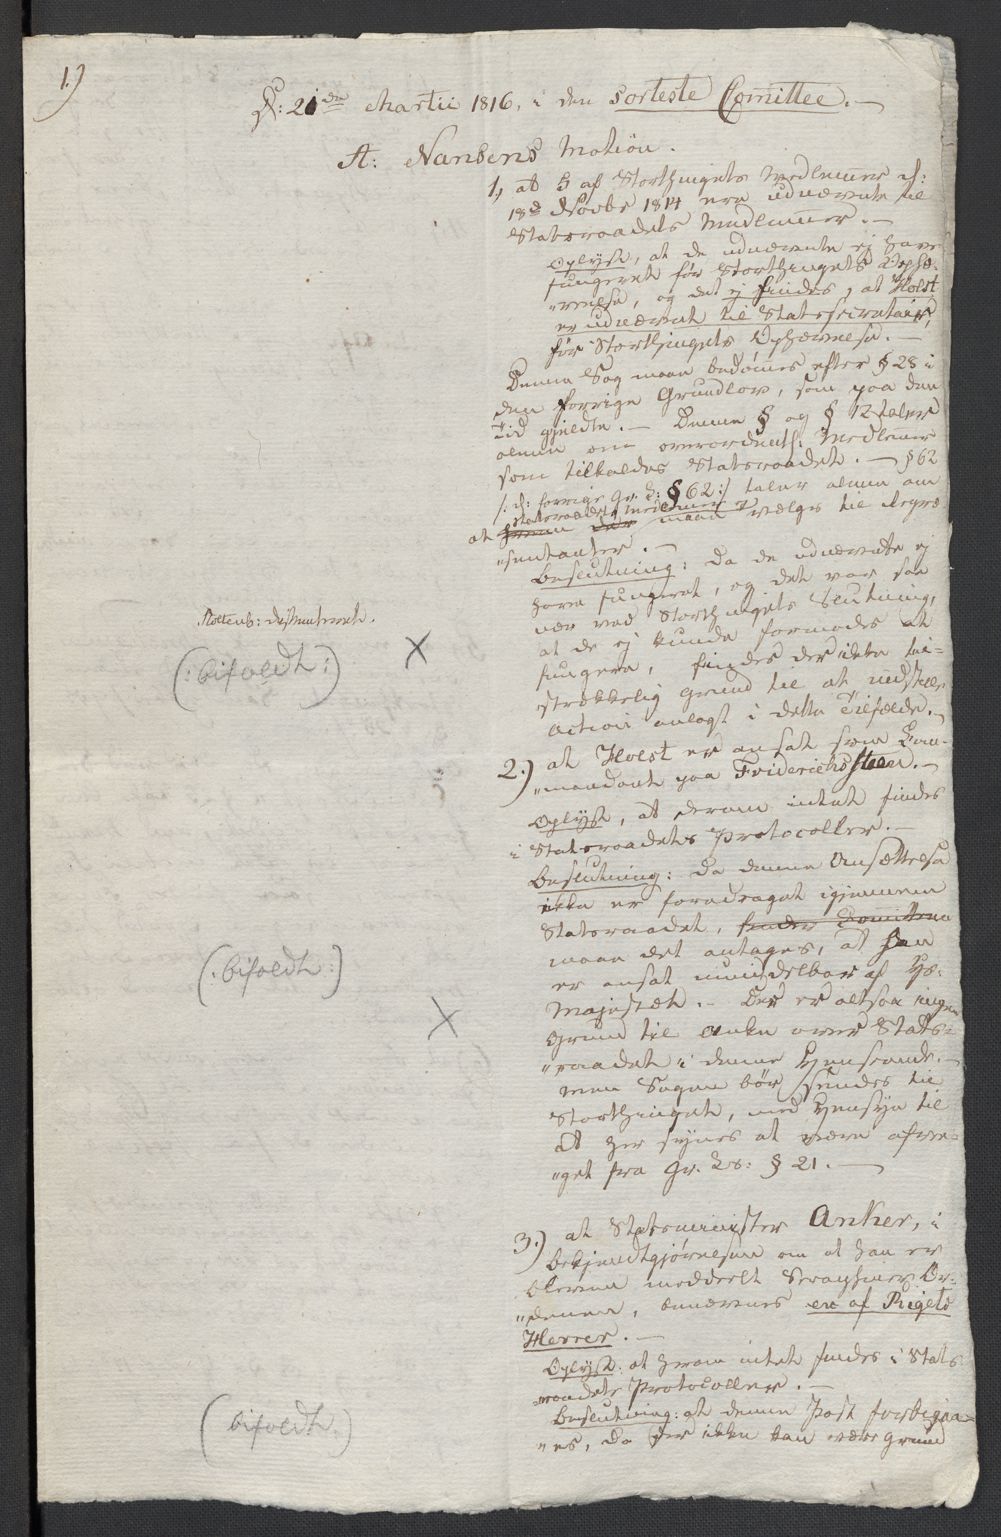 1.)
d: 21de Martii 1816, i den sorteste Committee. —
A: Nansens Motion.
1, at 5 af Storthingets Medlemer d:
18de Novbr 1814 ere udnævnte til
Statsraadets Medlemer. —
Oplyst, at de udnævnte ej have
fungeret før Storthingets Ophæ-
"velse, og det ej findes, at Holst
er udnævnt til Statssecretair,
før Storthingets Ophævelse. —
Denne Sag maae bedømes efter § 28 i
den forrige Grundlov, som paa den
Tid gjeldte. — Denne § og § 12 taler
alene om overordentl: Medlemer
som tilkaldes Statsraadet. — § 62
/: d: forrige Gr. L: § 62 :/ taler alene om
Statsraadets Medlemer
at maae vælges til Repræ
"sentanter. —
Beslutning: Da de udnævnte ej
have fungeret, og det var saa
nær ved Storthingets Slutning,
at de ej kunde formodes at
fungere, findes der ikke til-
strækkelig Grund til at indstille
Action anlagt i dette Tilfælde. —
Stoltenb: dissenterede.
(: bifaldt :) X
2.) at Holst er ansat som Com-
"mandant paa Friderichssteen. —
Oplyst, at derom intet findes
i Statsraadets Protocoller. —
Beslutning: Da denne Ansættelse
ikke er foredraget igjennem
Statsraadet, finder Committeen
maae det antages, at han
er ansat umiddelbar af Hs:
Majestæt. — Der er altsaa ingen
Grund til Anke over Stats-
"raadet i denne Henseende. —
men Sagen bør sendes til
Storthinget, med Hensyn til
at her synes at være afve-
"get fra Gr. Ls: § 21. —
(: bifaldt :) X
3.) at Statsminister Anker, i
Bekjendtgjørelsen om at han er
bleven meddeelt Seraphiner Or-
"denen, benævnes en af Rigets
Herrer. —
Oplyst: at herom intet findes i Stats
"raadets Protocoller. —
Beslutning: at denne Post forbigaa-
"es, da der ikke kan være Grund
(bifaldt.)